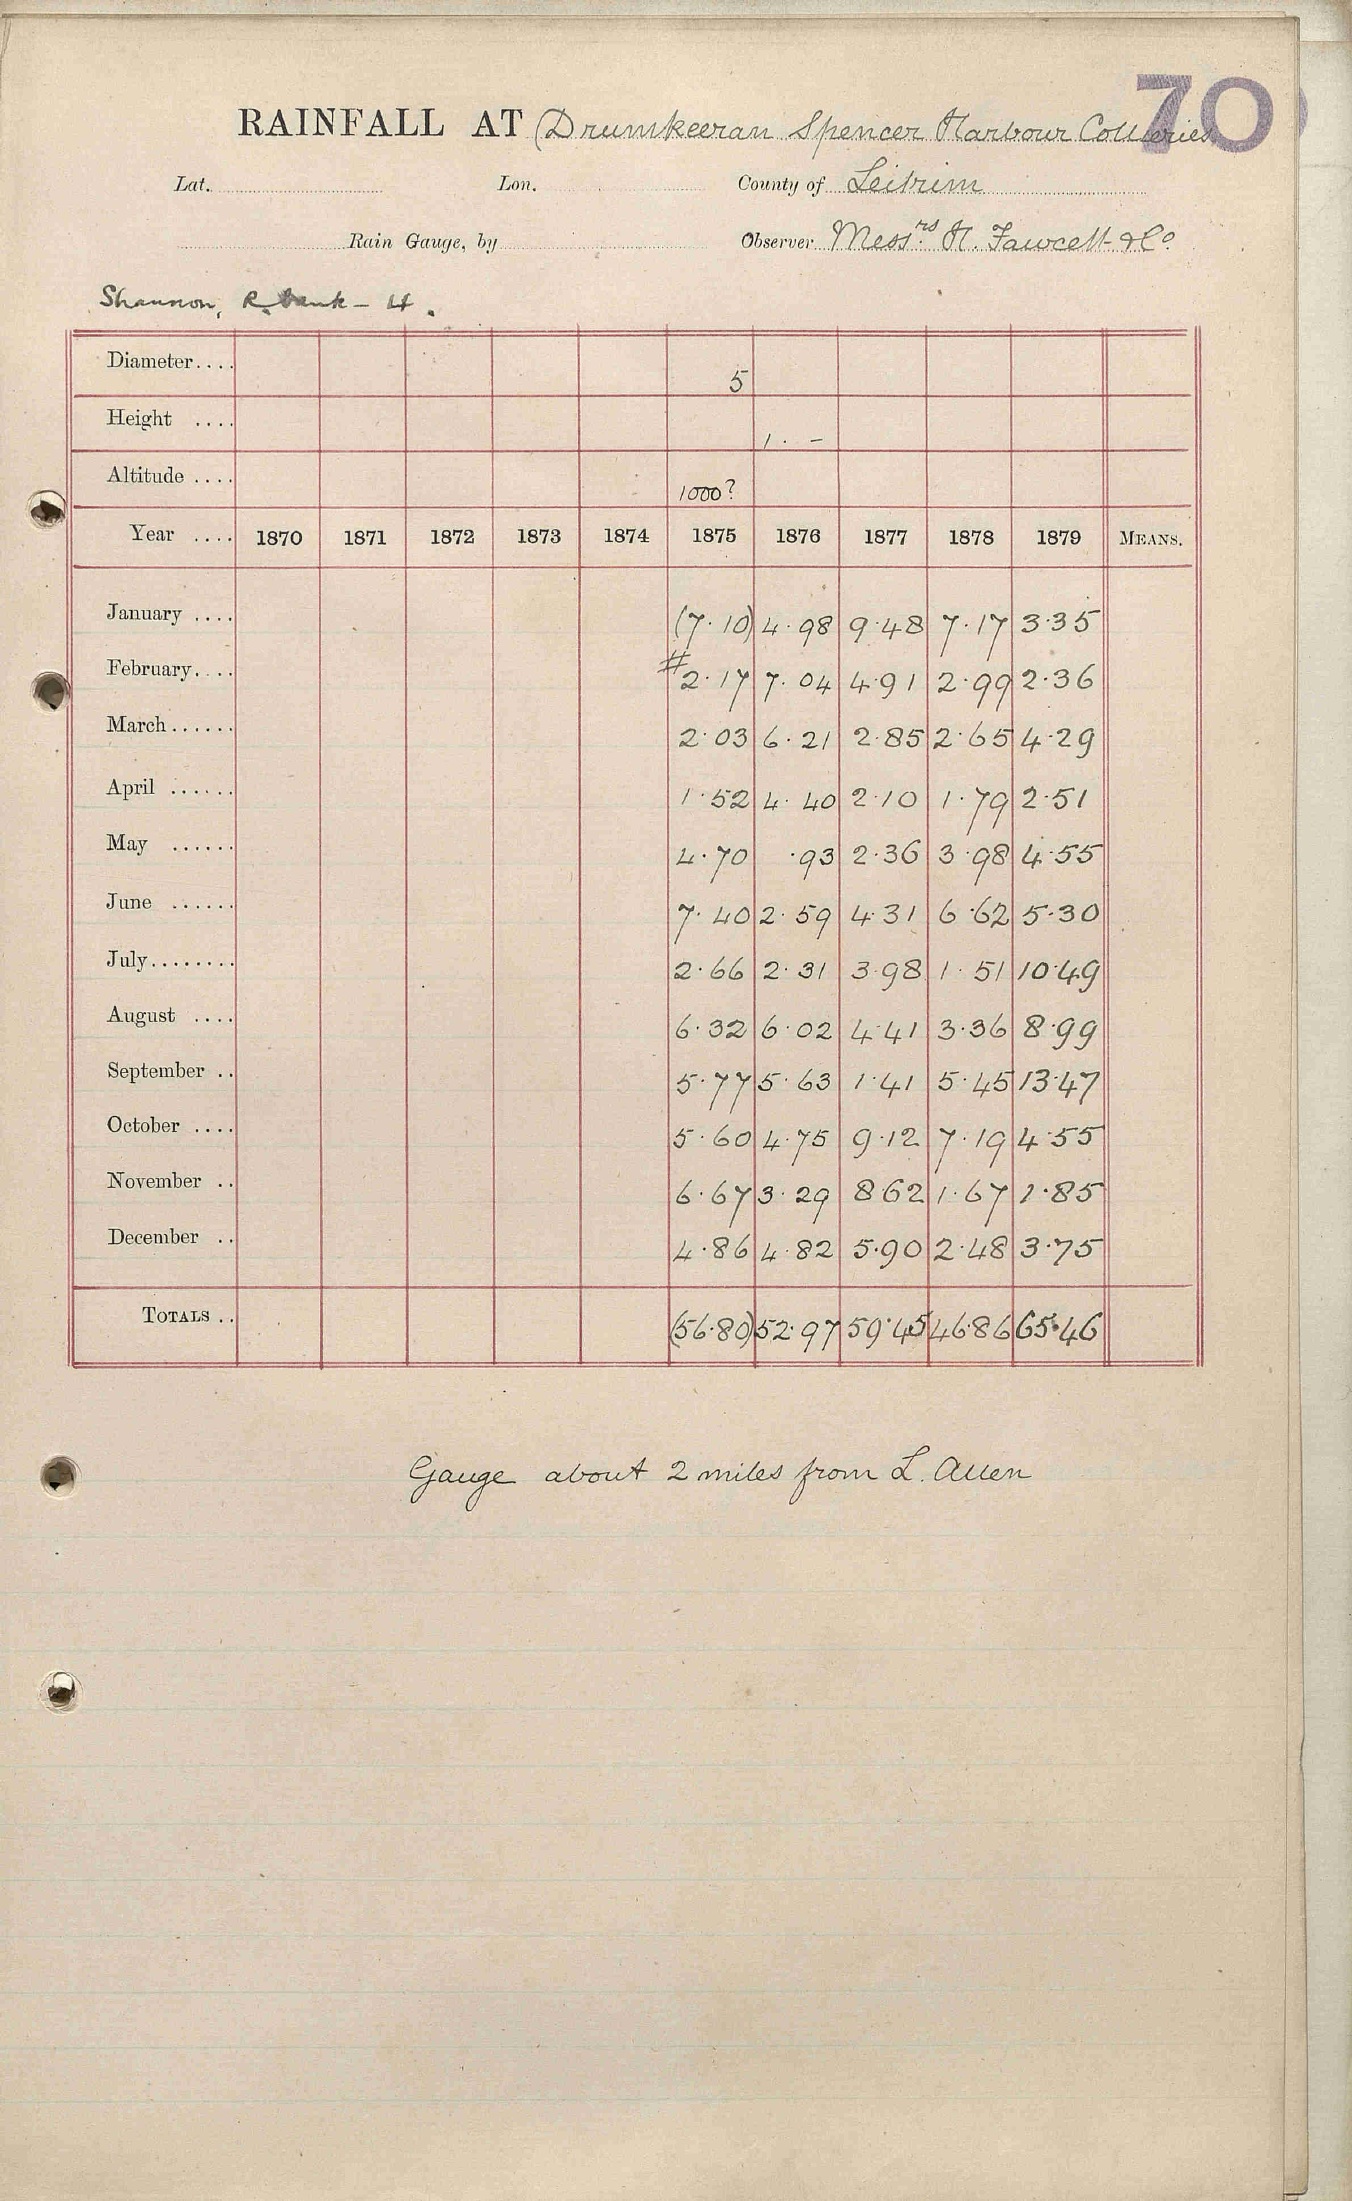 70
RAINFALL AT (Drumkeeran Spencer Harbour Collieries
Lat. Lon. County of Leitrim
Rain Gauge, by Observer Messrs. H. Fawcett & Co.
Shannon, R. bank - 4.
Diameter.... 5
Height .... 1 · –
Altitude .... 1000?
Year .... 1870 1871 1872 1873 1874 1875 1876 1877 1878 1879 MEANS.
January .... (7·10) 4·98 9·48 7·17 3·35
February.... #2·17 7·04 4·91 2·99 2·36
March...... 2·03 6·21 2·85 2·65 4·29
April ...... 1·52 4·40 2·10 1·79 2·51
May ...... 4·70 ·93 2·36 3·98 4·55
June ...... 7·40 2·59 4·31 6·62 5·30
July........ 2·66 2·31 3·98 1·51 10·49
August .... 6·32 6·02 4·41 3·36 8·99
September .. 5·77 5·63 1·41 5·45 13·47
October .... 5·60 4·75 9·12 7·19 4·55
November .. 6·67 3·29 8·62 1·67 1·85
December .. 4·86 4·82 5·90 2·48 3·75
TOTALS .. (56·80) 52·97 59·45 46·86 65·46
Gauge about 2 miles from L. Allen